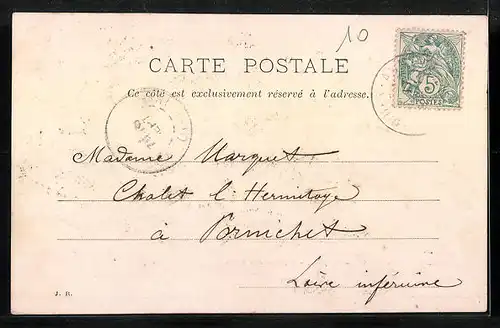 10
CARTE POSTALE
Ce côté est exclusivement réservé à l'adresse.
5
POSTES
Madame Marquet
Chalet l'Hermitage
à Pornichet
Loire inférieure
J. B.